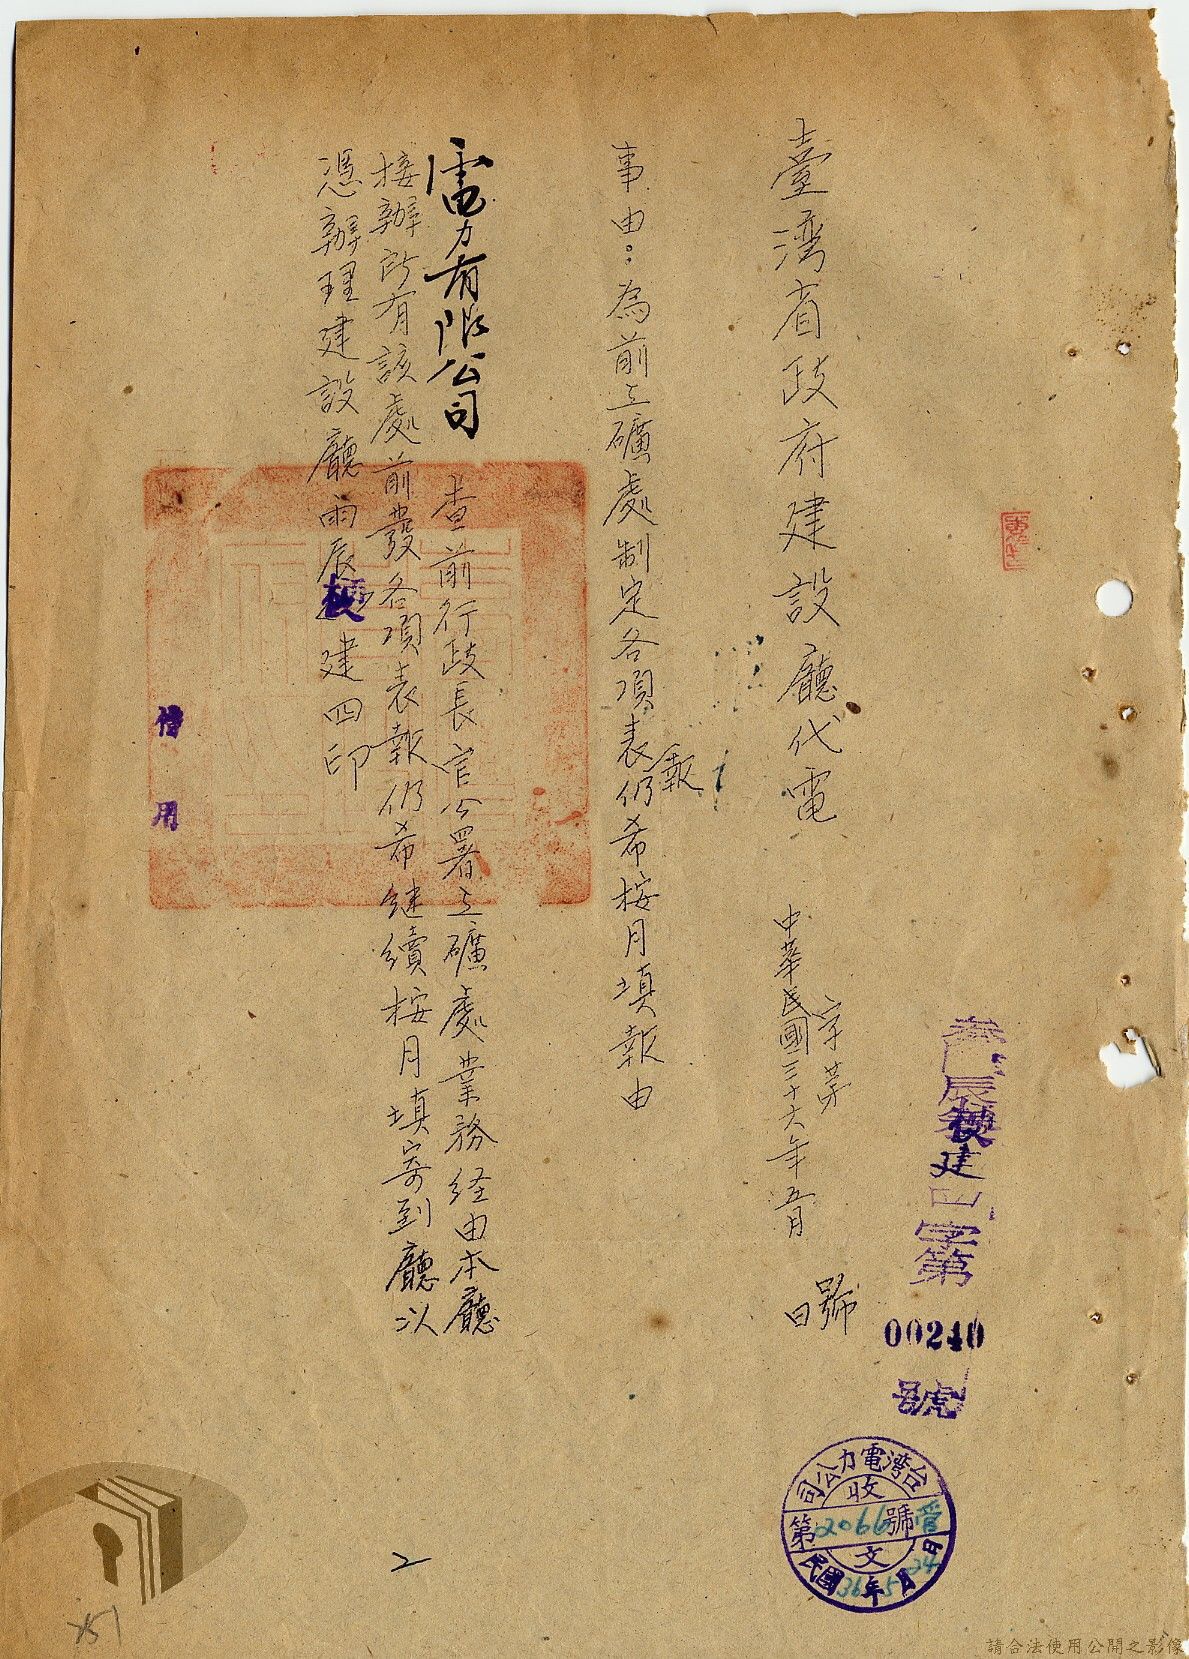 臺灣省政府建設廳代電
字第 號
中華民國三十六年五月 日
叁陸辰梗建四字第
00240
號
事由：為前工礦處制定各項表報仍希按月填報由
電力有限公司 查前行政長官公署工礦處業務経由本廳
接辦所有該處前發各項表報仍希继續按月填寄到廳以
憑辦理建設廳雨辰梗建四印
借用
台灣電力公司
收
第2066號
文
民國36年5月24日
2
請合法使用公開之影像